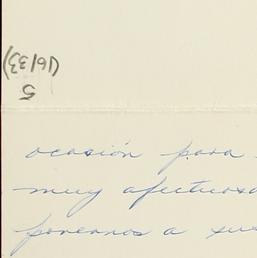 5
(16/33)
ocasión para
muy afectuosa
ponernos a sus